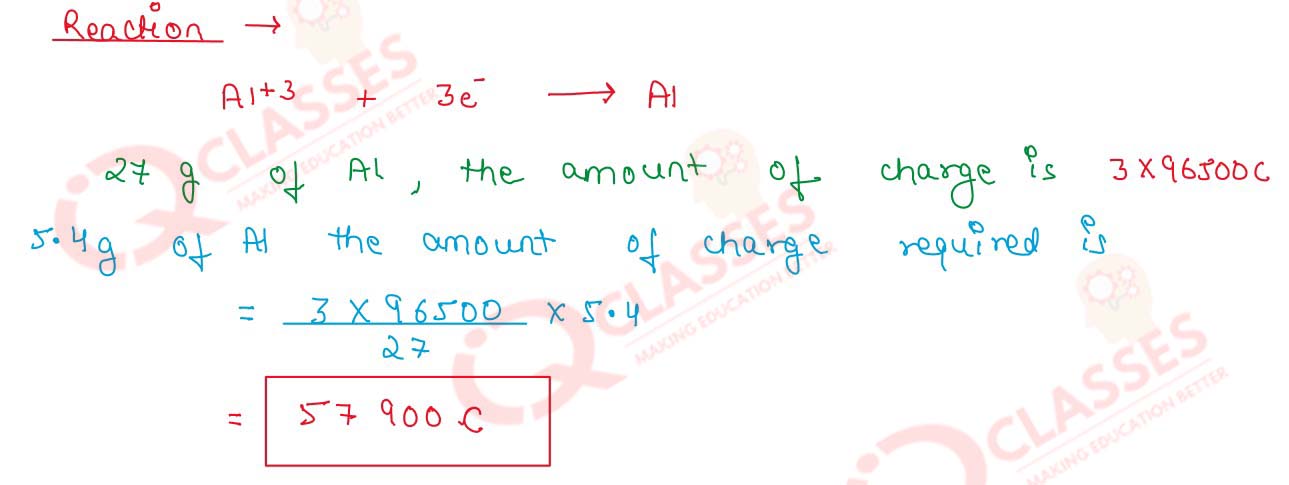 Reaction →
Al+3 + 3e⁻ ⟶ Al
27 g of Al, the amount of charge is 3 X 96500C
5.4g of Al the amount of charge required is
= 3 X 96500 / 27 X 5.4
= 57900 C
iQ CLASSES
MAKING EDUCATION BETTER
iQ CLASSES
MAKING EDUCATION BETTER
iQ CLASSES
MAKING EDUCATION BETTER